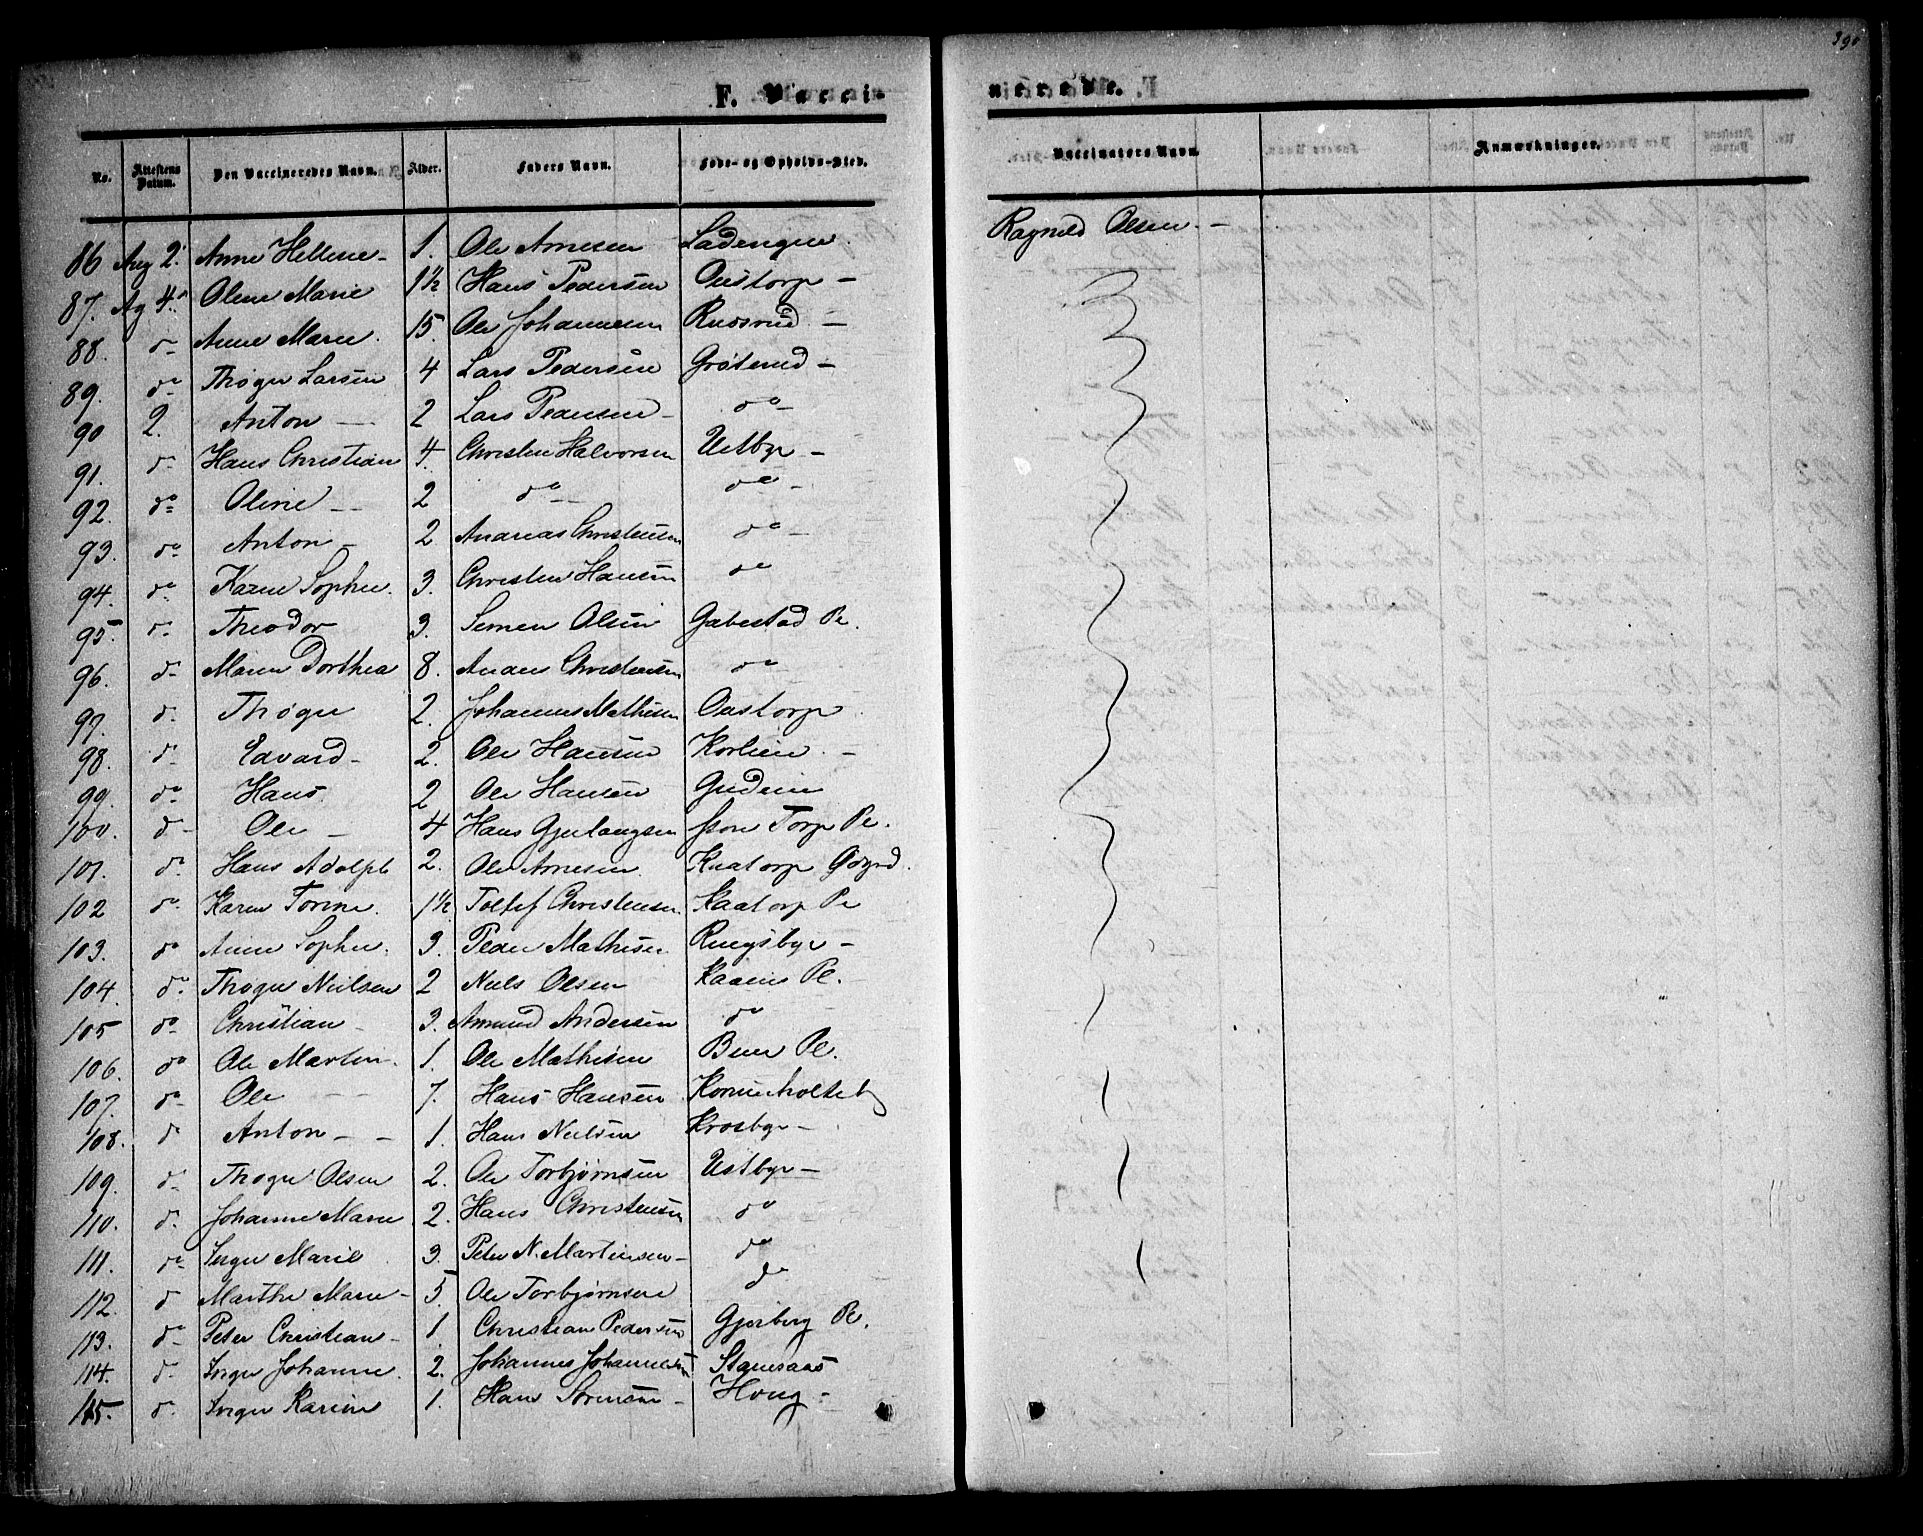 390
F. Vacci-
nerede.
No. Attestens Datum. Den Vaccineredes Navn. Alder. Faders Navn. Føde- og Opholds-Sted. Vaccinators Navn. Anmærkninger.
86 Aug 2. Anne Hellene - 1. Ole Arnesen Ladengen. Ragnild Olsen. -
87. Ag 4. Oline Marie 1½ Hans Pedersen Oustorp -
88. do Anne Marie. 15. Ole Johannesen Rusrud. -
89. do Thøger Larsen 4 Lars Pedersen Grøterud -
90 2. Anton - 2 Lars Pedersen - do -
91. do Hans Christian 4. Christen Halvorsen Ustbye -
92. do Oline - 2 do do -
93. do Anton - 2. Andreas Christensen do -
94. do Karen Sophie. 3. Christen Hansen do
95. do Theodor 3. Semen Olsen Gabestad Pe.
96. do Maren Dorthea 8. Anders Christensen do
97. do Thøger 2. Johannes Mathisen Oustorp
98. do Edvard - 2. Ole Hansen Korlien. -
99. do Hans. 2 Ole Hansen Gudeim
100. do Ole - 4 Hans Gjerlaugsen Torp Pe.
101. do Hans Adolph 2. Ole Arnesen Kaatorp
102 do Karen Torine. 1½ Tollef Christensen. Kaatorp Pe
103. do Anne Sophie. 3. Peder Mathisen Ringsbye -
104. do Thøger Nielsen 2 Niels Olsen Kaains Pe.
105 do Christian - 3. Amund Andersen do
106. do Ole Martin. 1. Ole Mathisen Buer Pe.
107. do Ole - - 7. Hans Hansen Kornerholteb
108. do Anton - - 1. Hans Nielsen Krosbye -
109. do Thøger Olsen 2. Ole Torbjørnsen Ustbye -
110. do Johanne Marie 2. Hans Christensen do
111. do Inger Marie 3. Peter N. Martinsen - do
112. do Marthe Marie - 5. Ole Torbjørnsen do
113. do Peter Christian - 1 Christian Pedersen Gjerberg Pe.
114. do Inger Johanne. 2. Johannes Johannesen Stamsaas
115. do Inger Karine 1. Hans Sørensen - Houg -